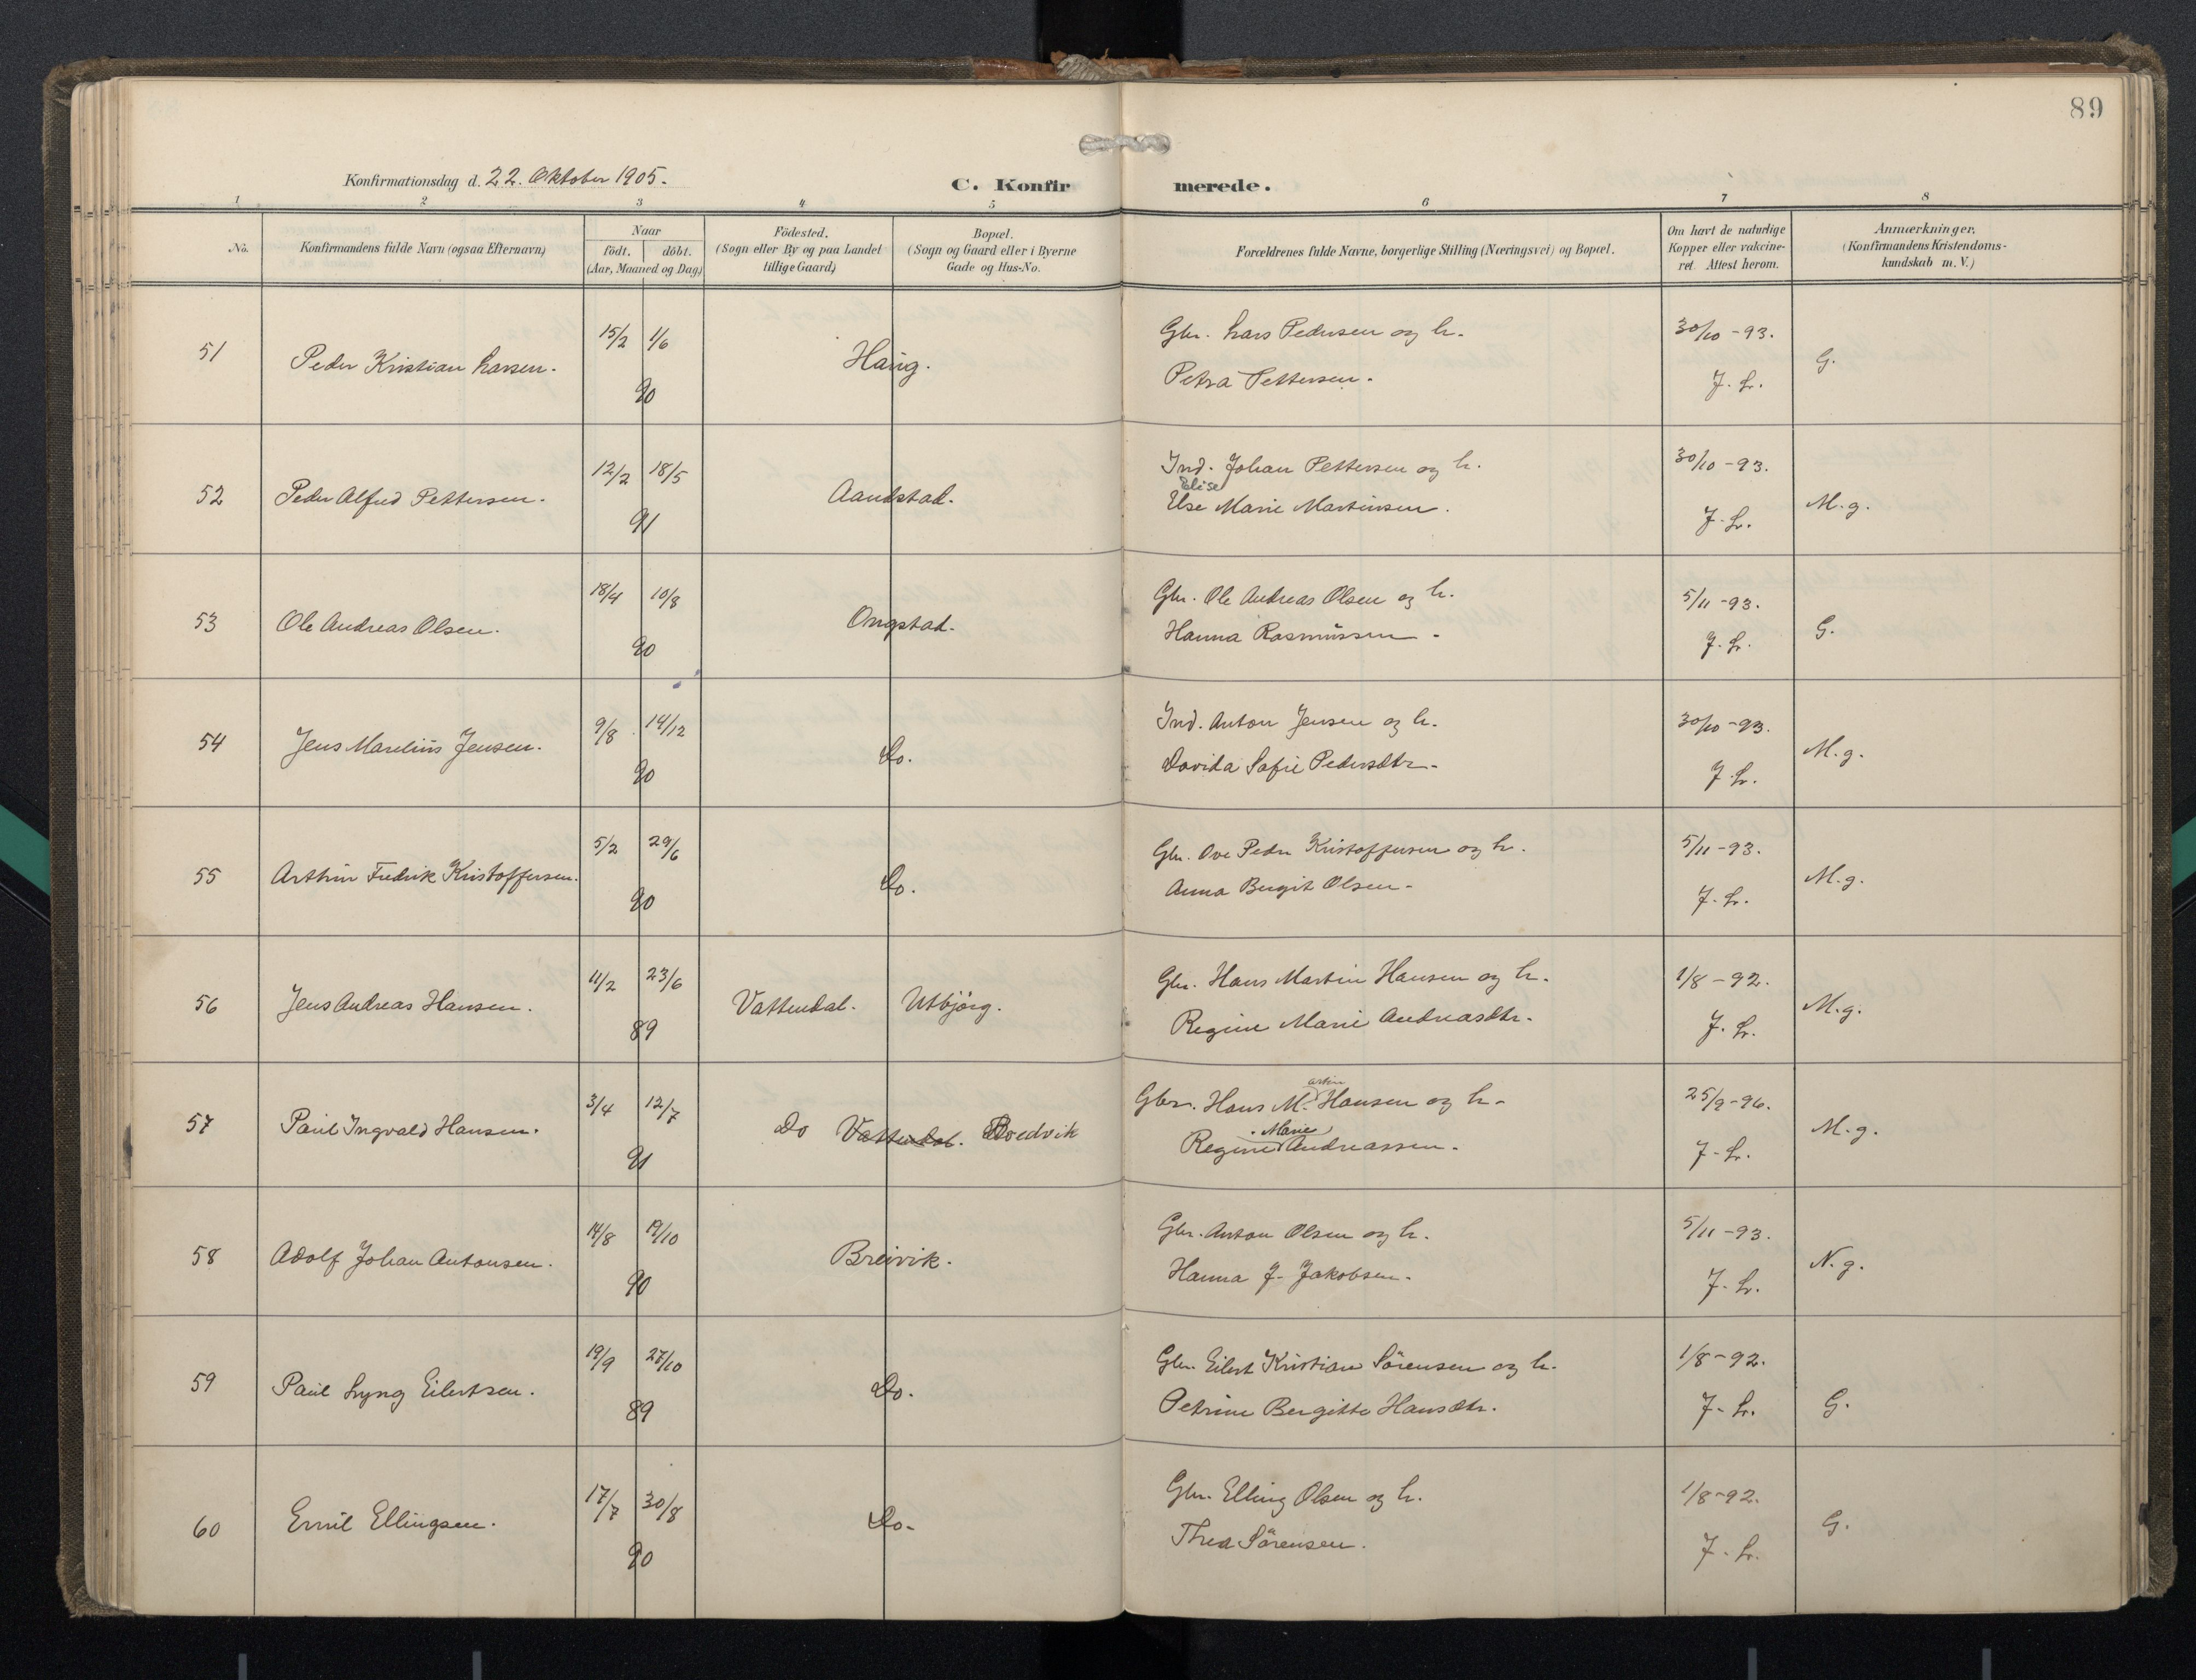 89
Konfirmationsdag d. 22. Oktober 1905.
C. Konfirmerede.
1 2 3 4 5 6 7 8
No.
Konfirmandens fulde Navn (ogsaa Efternavn)
Naar
födt. döbt.
(Aar, Maaned og Dag)
Födested.
(Sogn eller By og paa Landet
tillige Gaard)
Bopæl.
(Sogn og Gaard eller i Byerne
Gade og Hus-No.
Forældrenes fulde Navne, borgerlige Stilling (Næringsvei) og Bopæl.
Om havt de naturlige
Kopper eller vakcine-
ret. Attest herom.
Anmærkninger.
(Konfirmandens Kristendoms-
kundskab m. V.)
51 Peder Kristian Larsen. 15/2 1/6 90 Haug. Gbr. Lars Pedersen og h. 30/10-93. G.
Petra Pettersen. J. L.
52 Peder Alfred Pettersen. 12/2 18/5 91 Aandstad. Ind. Johan Pettersen og h. 30/10-93. M.g.
Elise
Else Marie Martinsen. J. L.
53 Ole Andreas Olsen. 18/4 10/8 90 Ongstad. Gbr. Ole Andreas Olsen og h. 5/11-93. G.
Hanna Rasmussen. J. L.
54 Jens Marelius Jensen. 9/8 14/12 90 Do. Ind. Anton Jensen og h. 30/10-93. M.g.
Davida Sofie Pedersdtr. J. L.
55 Arthur Fredrik Kristoffersen. 5/2 29/6 90 Do. Gbr. Ove Peder Kristoffersen og h. 5/11-93. M.g.
Anna Bergit Olsen. J. L.
56 Jens Andreas Hansen. 11/2 23/6 89 Vattendal. Utbjörg. Gbr. Hans Martin Hansen og h. 1/8-92. M.g.
Regine Marie Andreasdtr. J. L.
57 Paul Ingvald Hansen. 3/4 12/7 91 Do Vattendal. Boedvik Gbr. Hans M. artin Hansen og h. 25/9-96. M.g.
Regine Marie Andreassen. J. L.
58 Adolf Johan Antonsen. 14/8 19/10 90 Breivik. Gbr. Anton Olsen og h. 5/11-93. N.g.
Hanna J. Jakobsen. J. L.
59 Paul Lyng Eilertsen. 19/9 27/10 89 Do. Gbr. Eilert Kristian Sörensen og h. 1/8-92. G.
Petrine Bergitte Hansdtr. J. L.
60 Emil Ellingsen. 17/7 30/8 90 Do. Gbr. Elling Olsen og h. 1/8-92. G.
Thea Sörensen. J. L.